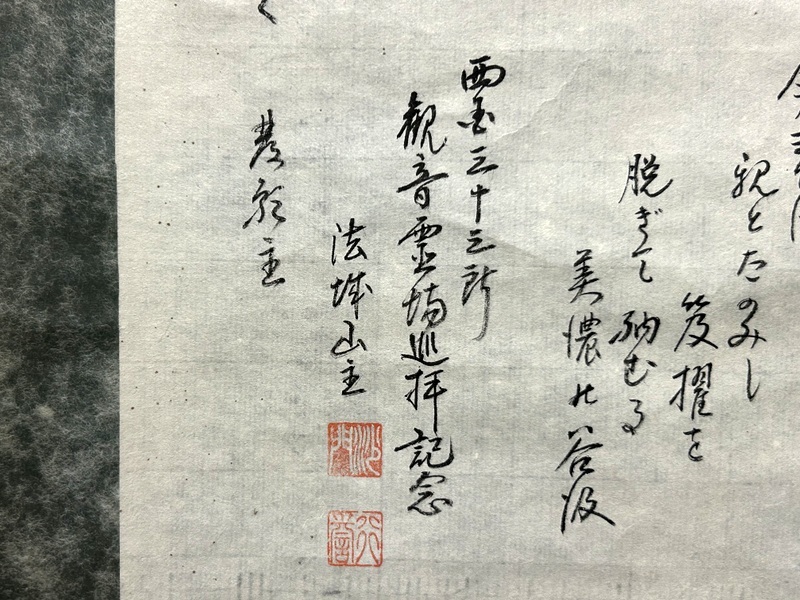 親とたのみし
笈擢を
脱ぎて納むる
美濃の谷汲
西国三十三所
観音霊場巡拝記念
法城山主
発願主